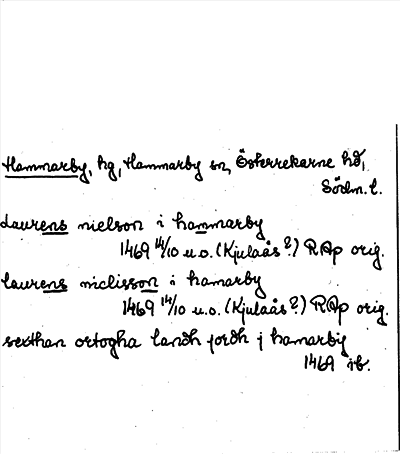 Hammarby, hg, Hammarby sn, Österrekarne hd,
Södm. l.
Laurens nielson i hammarby
1469 14/10 u.o. (Kjulaås?) RAp orig.
laurens niclisson i hamarby
1469 14/10 u.o. (Kjulaås?) RAp orig.
sexthan ortogha landh jordh j hamarby
1469 ib.